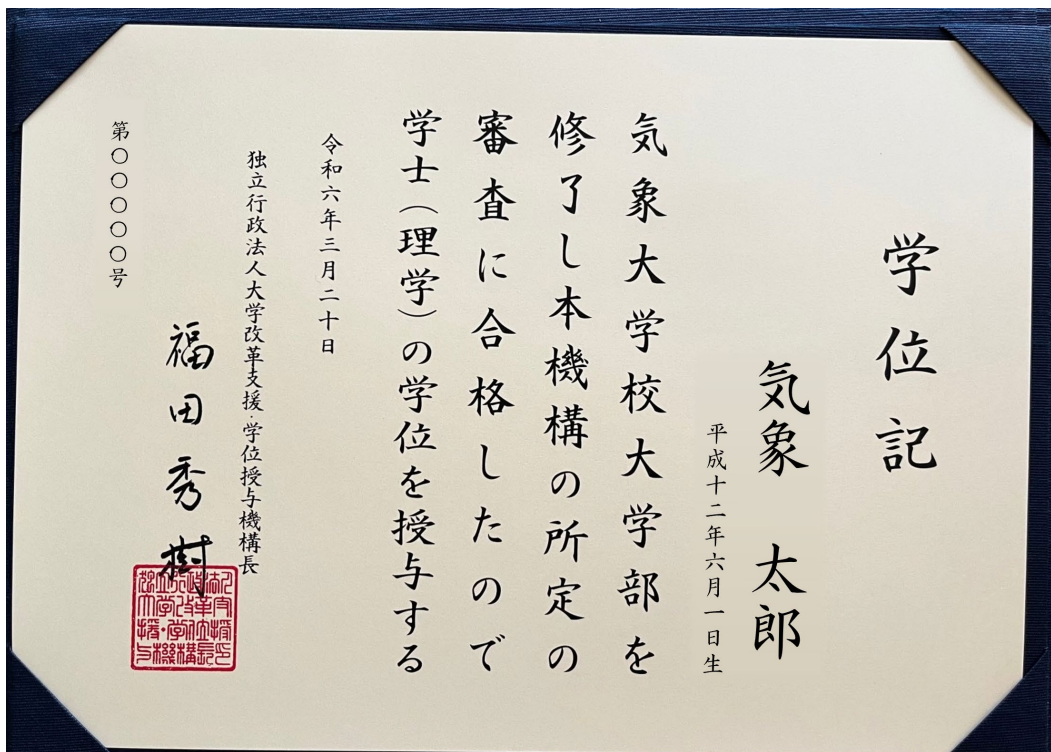 学位記
気象　太郎
平成十二年六月一日生
気象大学校大学部を
修了し本機構の所定の
審査に合格したので
学士（理学）の学位を授与する
令和六年三月二十日
独立行政法人大学改革支援・学位授与機構長
福田秀樹
第〇〇〇〇〇号
独立行政法人大学改革支援・学位授与機構長印